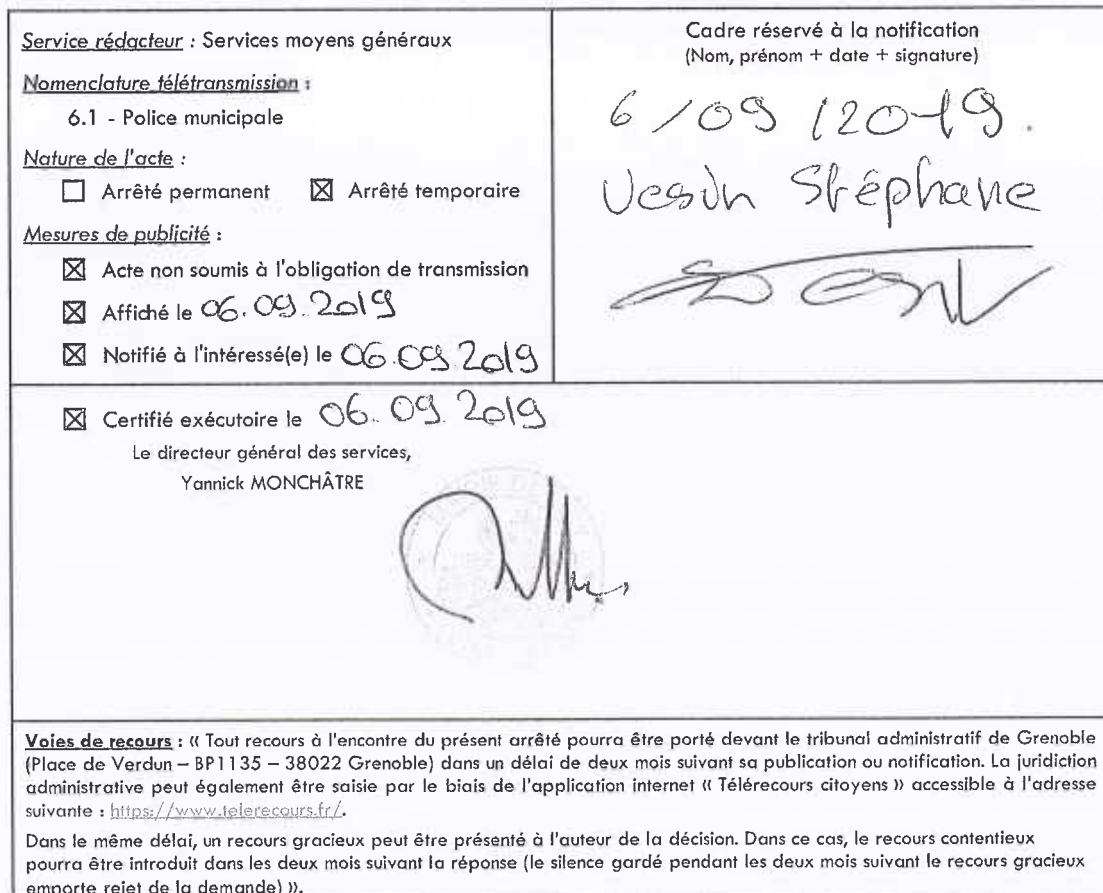 Service rédacteur : Services moyens généraux
Nomenclature télétransmission :
6.1 - Police municipale
Nature de l'acte :
☐ Arrêté permanent ☒ Arrêté temporaire
Mesures de publicité :
☒ Acte non soumis à l'obligation de transmission
☒ Affiché le 06.09.2019
☒ Notifié à l'intéressé(e) le 06.09.2019
Cadre réservé à la notification
(Nom, prénom + date + signature)
6/09/2019.
Vesin Stéphane
☒ Certifié exécutoire le 06.09.2019
Le directeur général des services,
Yannick MONCHÂTRE
Voies de recours : « Tout recours à l'encontre du présent arrêté pourra être porté devant le tribunal administratif de Grenoble
(Place de Verdun – BP1135 – 38022 Grenoble) dans un délai de deux mois suivant sa publication ou notification. La juridiction
administrative peut également être saisie par le biais de l'application internet « Télérecours citoyens » accessible à l'adresse
suivante : https://www.telerecours.fr/.
Dans le même délai, un recours gracieux peut être présenté à l'auteur de la décision. Dans ce cas, le recours contentieux
pourra être introduit dans les deux mois suivant la réponse (le silence gardé pendant les deux mois suivant le recours gracieux
emporte rejet de la demande) ».